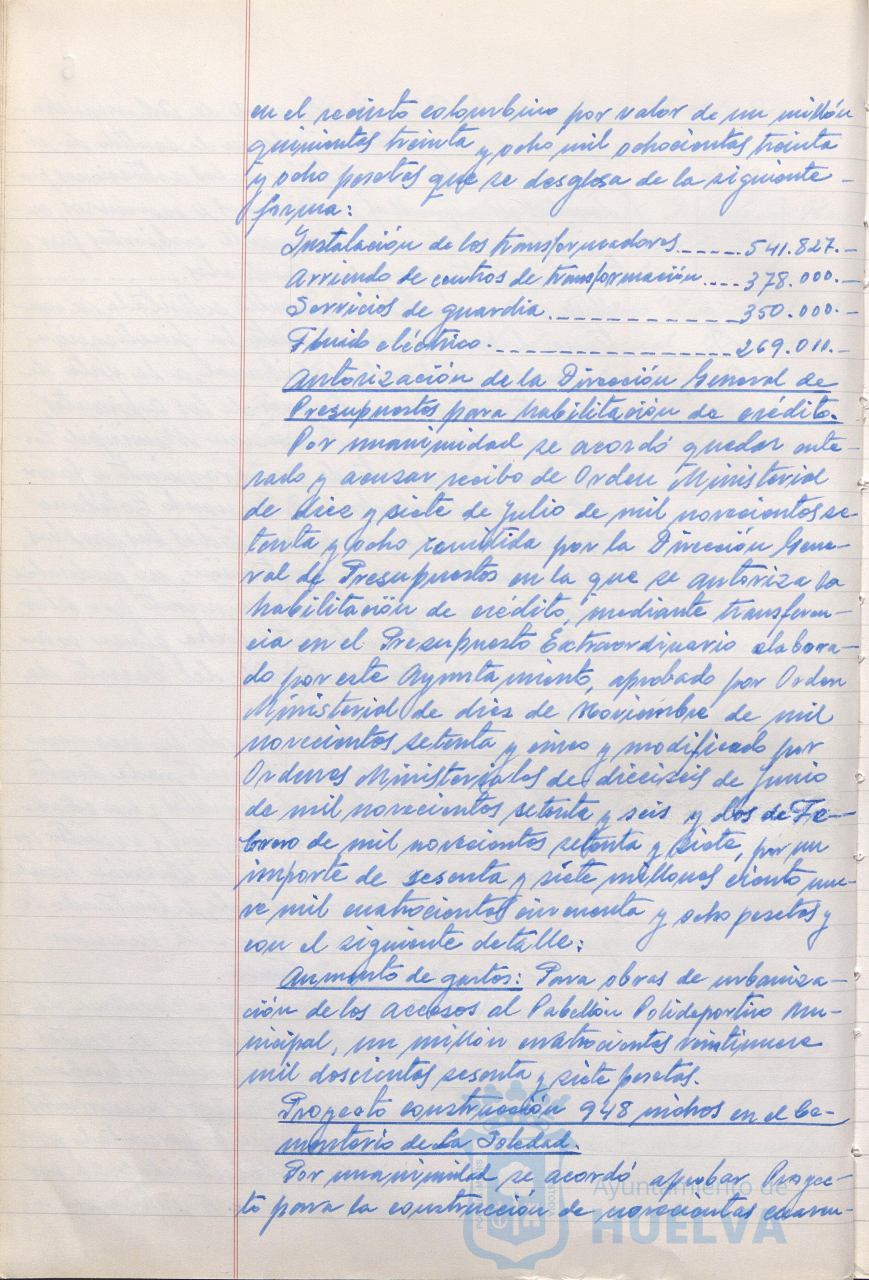 en el recinto colombino por valor de un millón
quinientas treinta y ocho mil ochocientas treinta
y ocho pesetas que se desglosa de la siguiente -
forma:
Instalación de los transformadores.-----541.827.-
Arriendo de centros de transformación.---378.000.-
Servicios de guardia.--------------350.000.-
Fluido eléctrico.-----------------269.011.-
Autorización de la Dirección General de
Presupuestos para habilitación de crédito.
Por unanimidad se acordó quedar ente-
rado y acusar recibo de Orden Ministerial
de diez y siete de Julio de mil novecientos se-
tenta y ocho remitida por la Dirección Gene-
ral de Presupuestos en la que se autoriza la
habilitación de crédito, mediante transferen-
cia en el Presupuesto Extraordinario elabora-
do por este Ayuntamiento, aprobado por Orden
Ministerial de diez de Noviembre de mil
novecientos setenta y cinco y modificado por
Ordenes Ministeriales de dieciseis de Junio
de mil novecientos setenta y seis y dos de Fe-
brero de mil novecientos setenta y siete, por un
importe de sesenta y siete millones ciento nue-
ve mil cuatrocientas cincuenta y ocho pesetas y
con el siguiente detalle:
Aumento de gastos: Para obras de urbaniza-
ción de los accesos al Pabellón Polideportivo Mu-
nicipal, un millón cuatrocientas veintinueve
mil doscientas sesenta y siete pesetas.
Proyecto construcción 948 nichos en el Ce-
menterio de La Soledad.
Por unanimidad se acordó aprobar Proyec-
to para la construcción de novecientos cuaren-
Ayuntamiento de
HUELVA